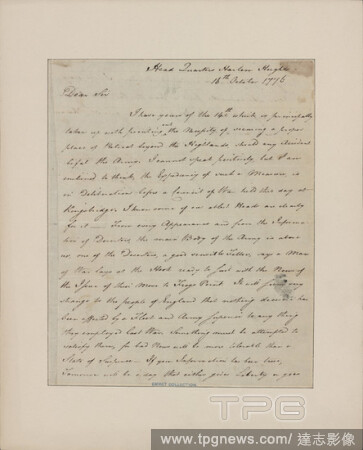 Head Quarters Harlem Heights
16th October 1776
Dear Sir
I have yours of the 14th which is principally
taken up with pointing out the necessity of securing a proper
place of Retreat beyond the Highlands should any accident
befal the Army. I cannot speak positively, but I am
inclined to think, the Expediency of such a Measure, is
in Deliberation before a Council of War held this day at
Kingsbridge. I know some of our ablest Heads are clearly
for it — From every Appearance and from the Information
of Deserters, the main Body of the Army is above
us, one of the Deserters, a good sensible fellow, says a Man
of War lays at the
of the
to Frogs Point. It will give
to the people of England that nothing decisive has
been effected by a Fleet and Army superior to any thing
they employed last War. Something must be attempted to
satisfy them, for bad News will be more tolerable than a
State of Suspense — If your Information has been true,
PATENT COLLECTION
TPG
www.tpgnews.com/ 達志影像